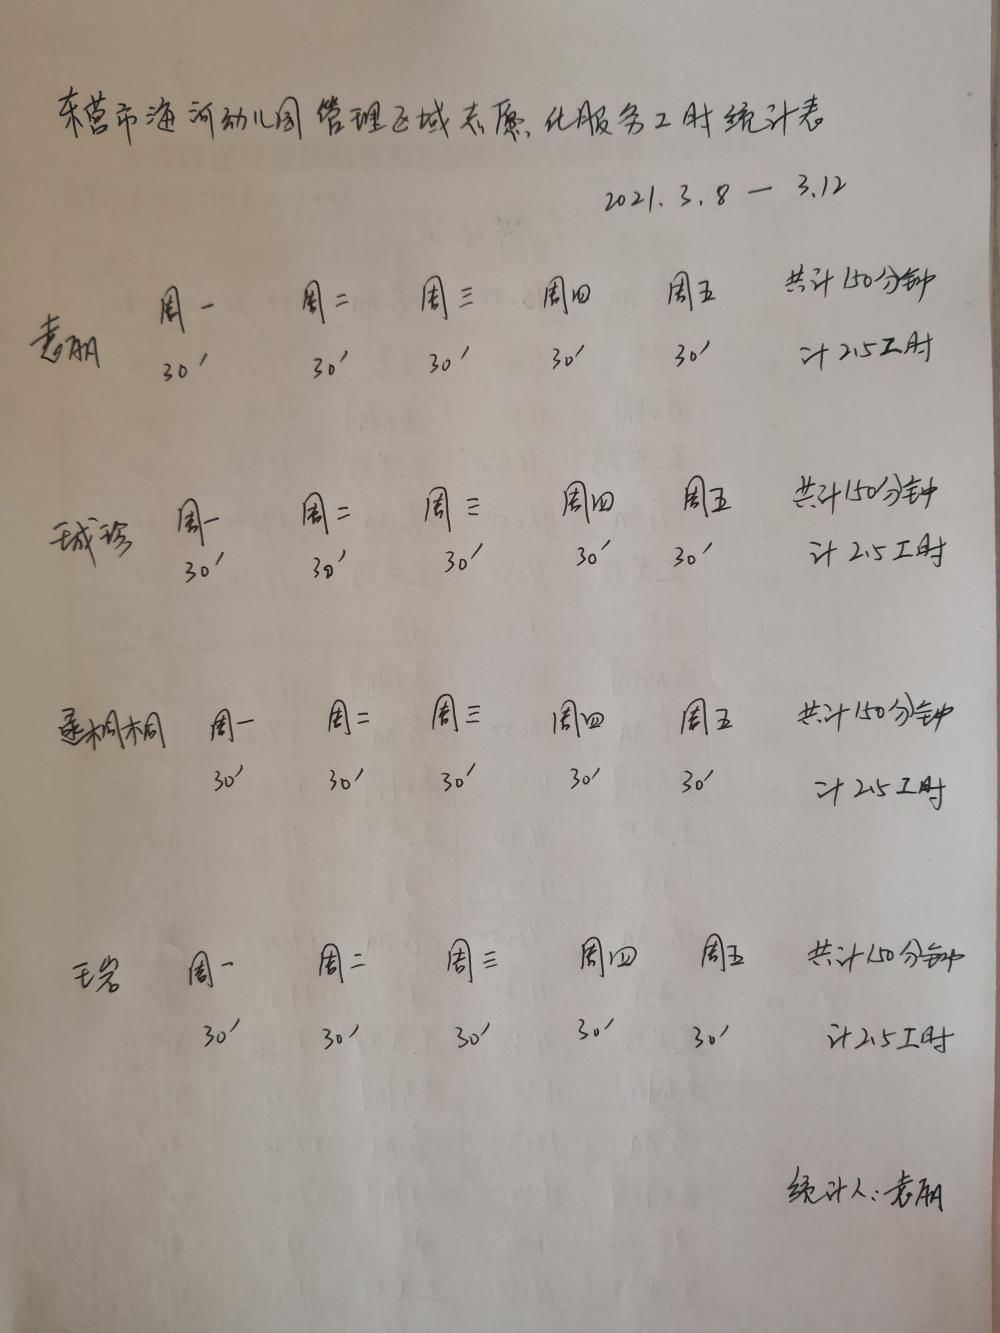 东营市海河幼儿园管理区域志愿化服务工时统计表
2021.3.8 — 3.12
袁朋 周一 周二 周三 周四 周五 共计150分钟
30′ 30′ 30′ 30′ 30′ 计2.5工时
王成珍 周一 周二 周三 周四 周五 共计150分钟
30′ 30′ 30′ 30′ 30′ 计2.5工时
桐桐 周一 周二 周三 周四 周五 共计150分钟
30′ 30′ 30′ 30′ 30′ 计2.5工时
王岩 周一 周二 周三 周四 周五 共计150分钟
30′ 30′ 30′ 30′ 30′ 计2.5工时
统计人:袁朋